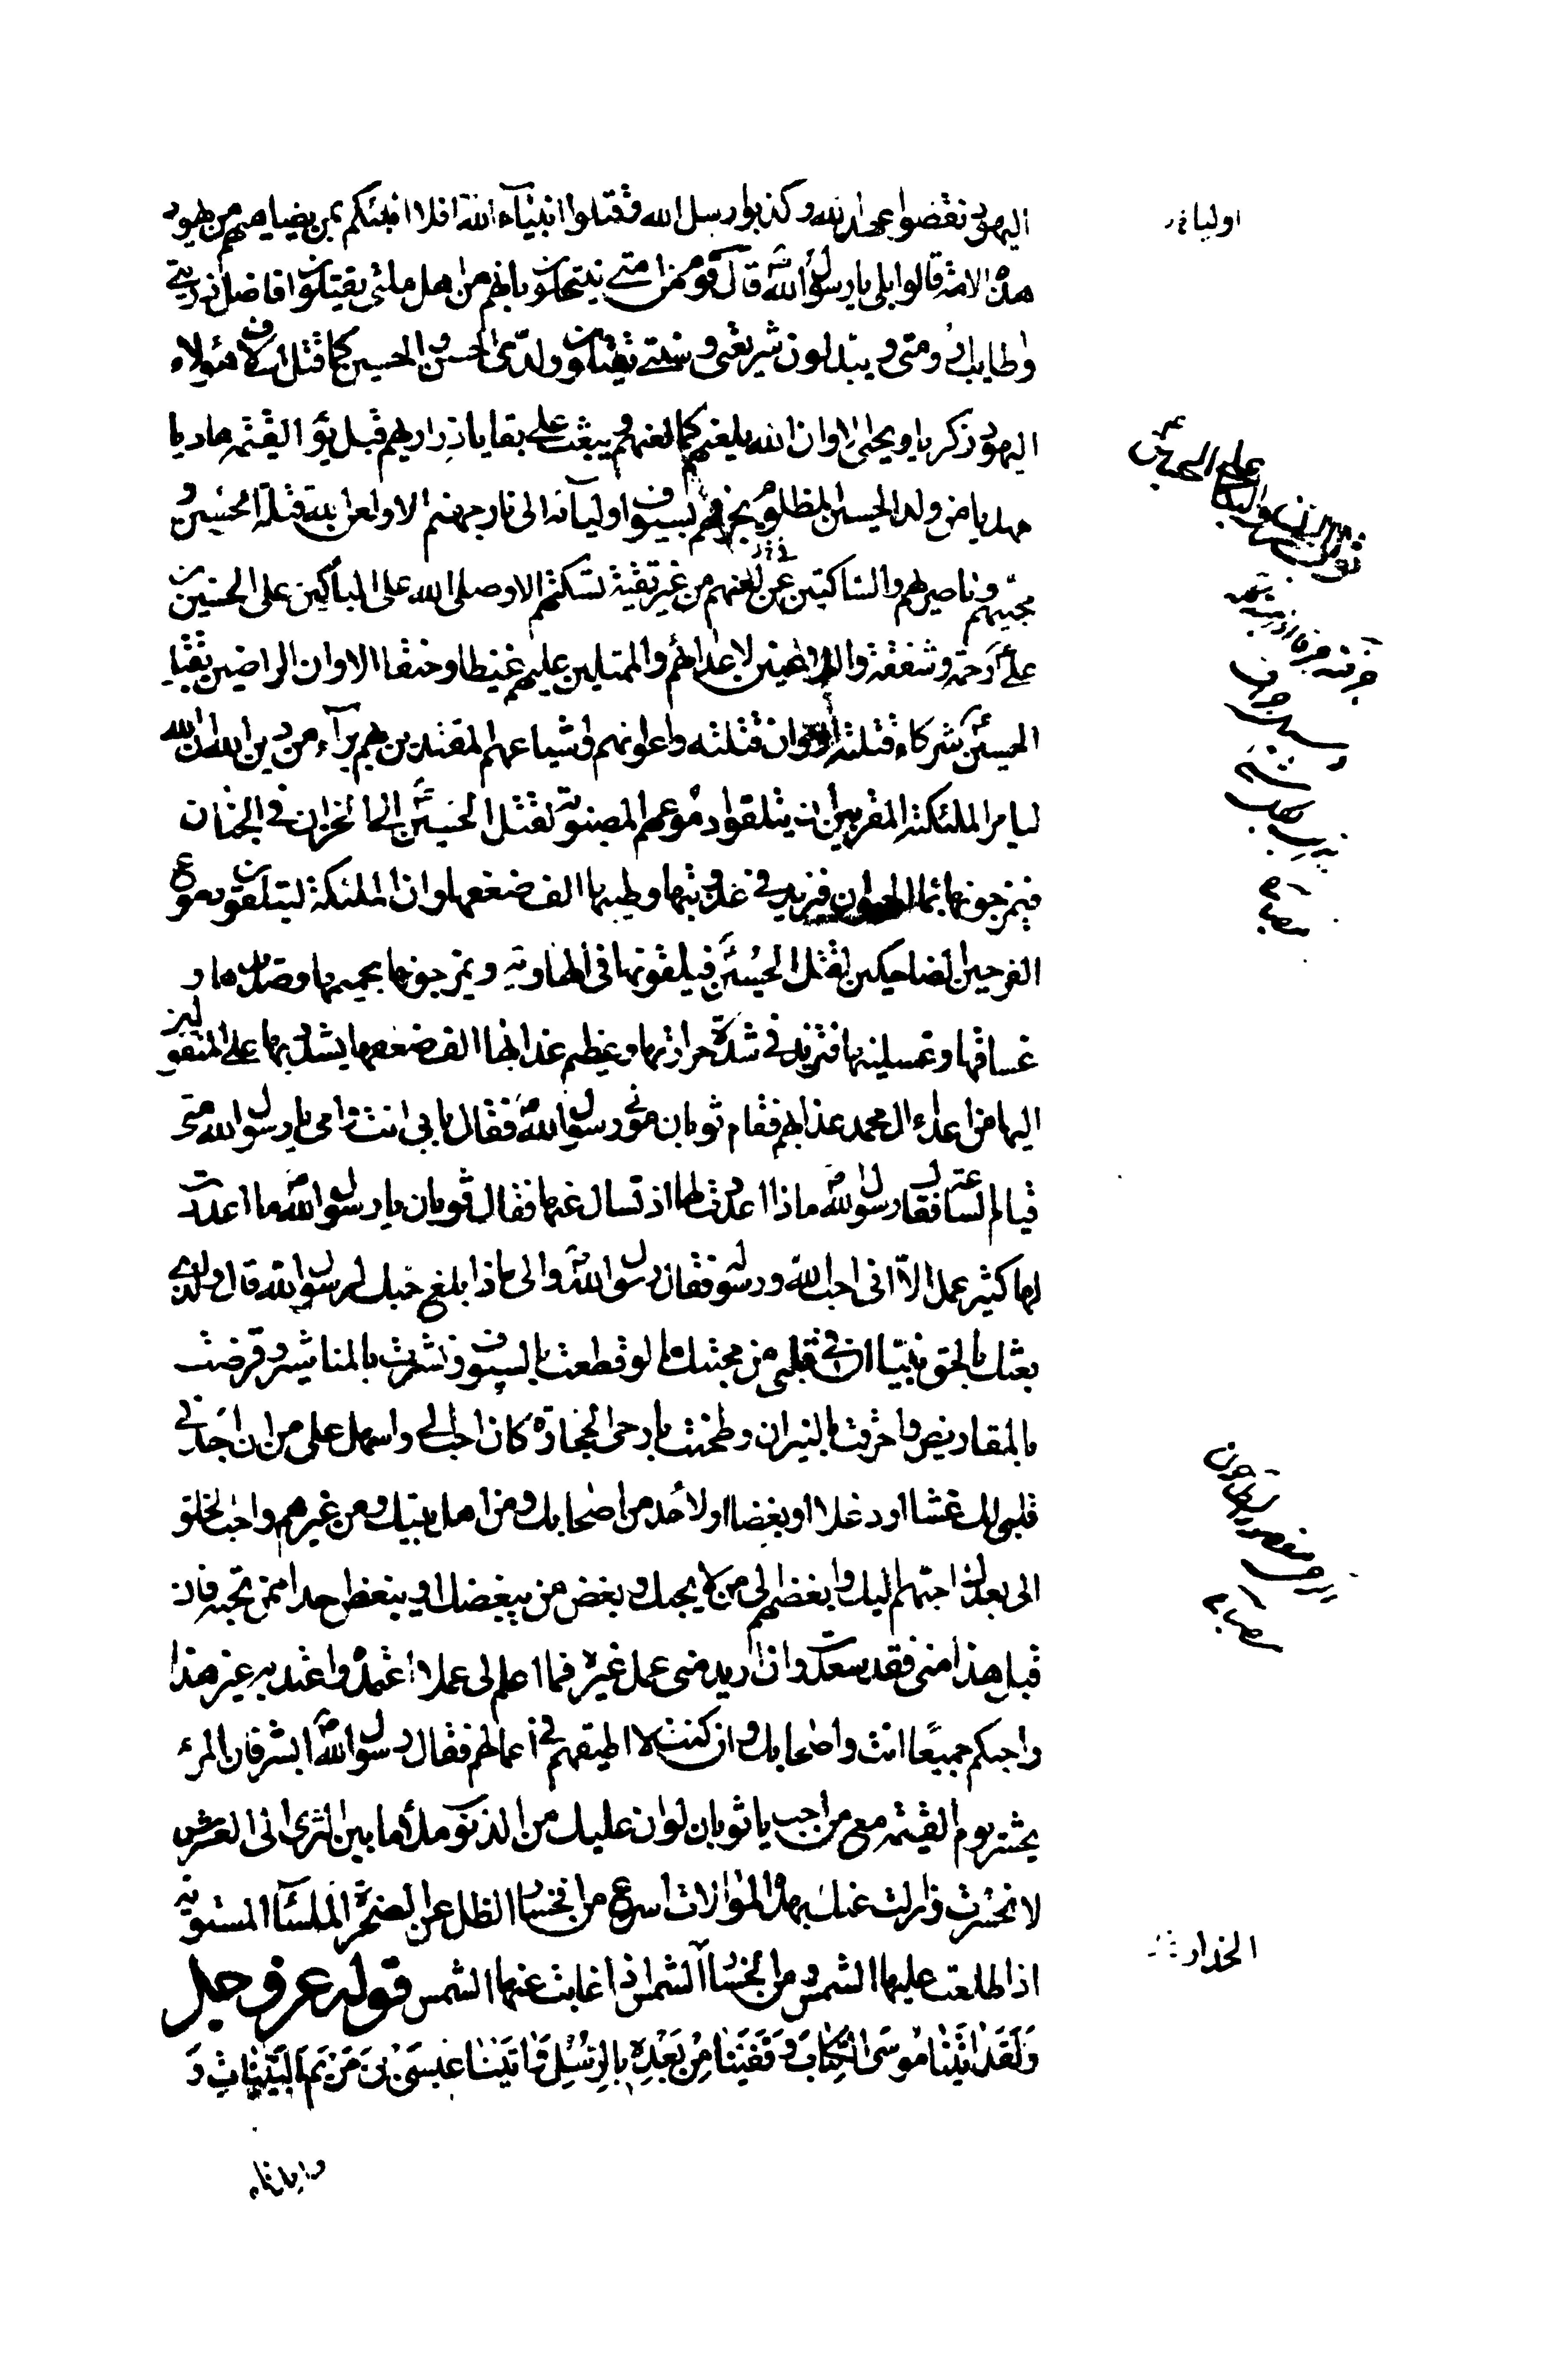 اليهود نقضوا عهد الله وكذبوا رسل الله وقتلوا انبيآء الله افلا انبئكم بمن يضاهيهم من يهود
هذه الامة قالوا بلى يا رسول الله قال قوم من امتي ينتحلون بانهم من اهل ملتي يقتلون افاضل ذريتي
واطايب ارومتي ويبدلون شريعتي وسنتي ويقتلون ولدي الحسن والحسين كما قتل اسلاف هؤلاء
اليهود زكريا ويحيى الا وان الله يلعنهم كما لعنهم ويبعث على بقايا ذراريهم قبل يوم القيمة هاديا
مهديا من ولد الحسين المظلوم يحرفهم بسيوف اوليآئه الى نار جهنم الا ولعن الله قتلة الحسين و
محبيهم وناصريهم والساكتين عن لعنهم من غير تقية تسكتهم الا وصلى الله على الباكين على الحسين
رحمة وشفقة واللاعنين لاعدائهم والممتلين عليهم غيظا وحنقا الا وان الراضين بقتل
الحسين شركاء قتلته الا وان قتلته واعوانهم واشياعهم المقتدين بهم برآء من دين الله ان الله
ليامر الملئكة المقربين ان يتلقوا دموعهم المصبوبة لقتل الحسين الى الخزان في الجنان
فيمزجونها بماء الحيوان فيزيد في عذوبتها وطيبها الف ضعفها وان الملئكة ليتلقون دموع
الفرحين الضاحكين لقتل الحسين فيلقونها في الهاوية ويمزجونها بحميمها وصديدها و
غساقها وغسلينها فتزيد في شدة حرارتها وعظيم عذابها الف ضعفها يشدد بها على المنقولين
اليها من اعداء ال محمد عذابهم فقام ثوبان مولى رسول الله فقال بابي انت وامي يا رسول الله متى
قيام الساعة فقال رسول الله ماذا اعددت لها اذ تسال عنها فقال ثوبان يا رسول الله ما اعددت
لها كثير عمل الا اني احب الله ورسوله فقال رسول الله والى ماذا بلغ حبك لرسول الله قال والذي
بعثك بالحق نبيا ان في قلبي من محبتك ما لو قطعت بالسيوف ونشرت بالمناشير وقرضت
بالمقاريض واحرقت بالنيران وطحنت بارحى الحجارة كان احب الي واسهل علي من ان اجد في
قلبي لك غشا او دغلا او بغضا او لاحد من اصحابك ومن اهل بيتك ومن غيرهم واحب الخلق
الى بعدك احبهم اليك وابغضهم الي من لا يحبك وبغض من يبغضك او يبغض احدا ممن تحبه فان
قبل هذا مني فقد سعدت وان اريد مني عمل غيره فما اعلم لي عملا اعتمده واعتد به غير هذا
واحبكم جميعا انت واصحابك وان كنت لا اطيقهم في اعمالهم فقال رسول الله ابشر فان المرء
يحشر يوم القيمة مع من احب يا ثوبان لو ان عليك من الذنوب ملأ ما بين الثرى الى العرش
لانحسرت وزالت عنك بهذه الموالات اسرع من انحسار الظل عن الصخرة الملسآء المستوية
اذا طلعت عليها الشمس ومن انحسار الشمس اذا غابت عنها الشمس قوله عز وجل
وَلَقَدْ اٰتَيْنٰا مُوسَى الْكِتٰابَ وَقَفَّيْنٰا مِنْ بَعْدِهِ بِالرُّسُلِ وَاٰتَيْنٰا عيسَى بْنَ مَرْيَمَ الْبَيِّنٰاتِ وَ
وايدناه